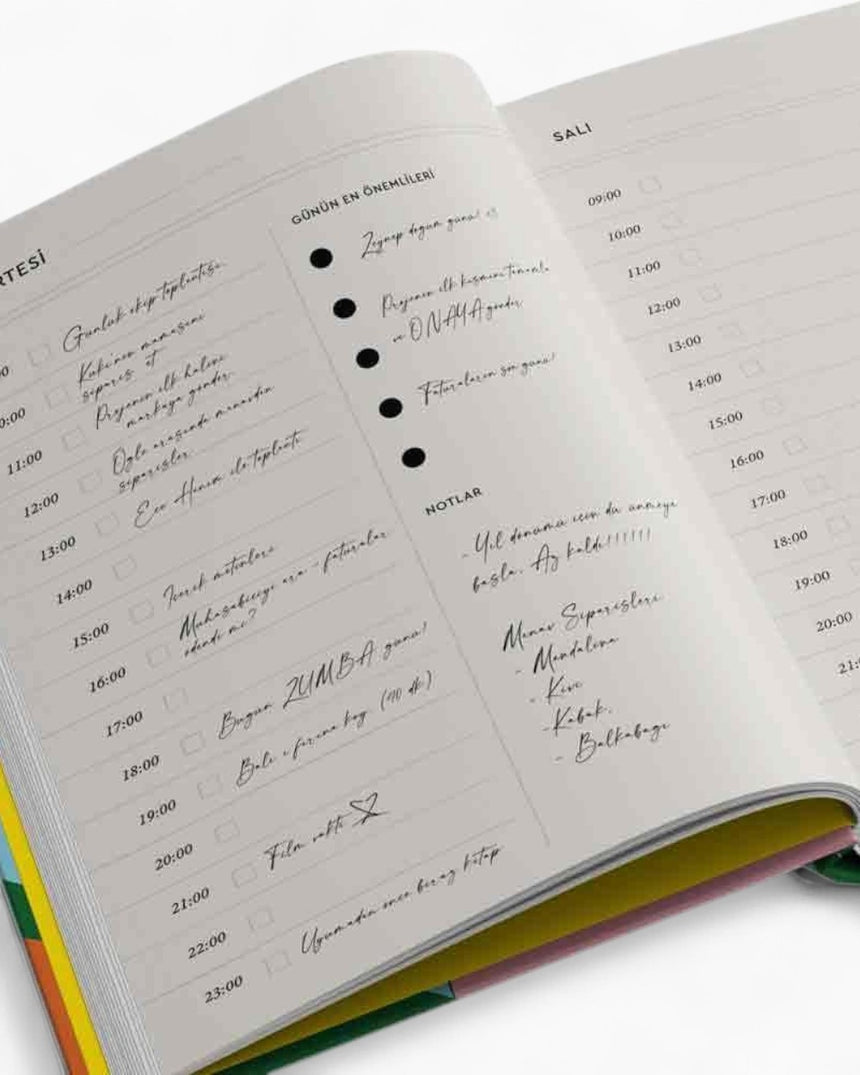 RTESİ
00
Günlük ekip toplantısı.
0:00
Kuki'nin mamasını
sipariş et
11:00
Projenin ilk halini
markaya gönder.
12:00
Öğle arasında manavdan
siparişler.
13:00
Ece Hanım ile toplantı
14:00
15:00
İçerik metinleri
16:00
Muhasebeciyi ara - faturalar
ödendi mi?
17:00
18:00
Bugün ZUMBA günü!
19:00
Balı ı fırına koy. (40 dk.)
20:00
21:00
Film vakti
22:00
23:00
Uyumadan önce biraz kitap
GÜNÜN EN ÖNEMLİLERİ
Zeynep doğum günü!
Projenin ilk kısmını tamamla
ve ONAYA gönder.
Faturaların son günü!
NOTLAR
- Yıl dönümü için düşünmeye
başla. Az kaldı!!!!!!
Manav Siparişleri
- Mandalina
- Kivi
- Kabak.
- Balkabağı
SALI
09:00
10:00
11:00
12:00
13:00
14:00
15:00
16:00
17:00
18:00
19:00
20:00
21: